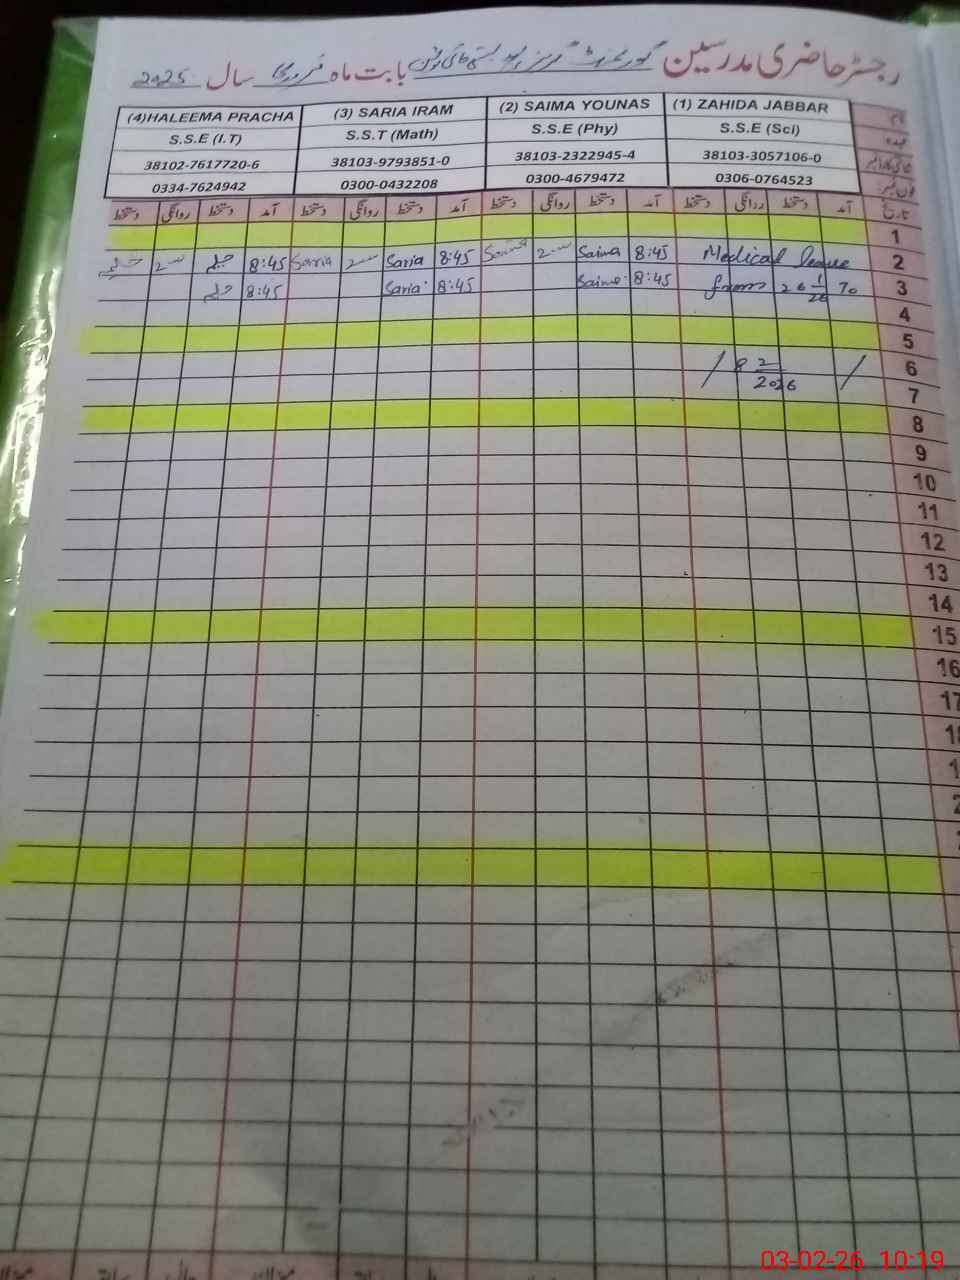 رجسٹر حاضری مدرسین گورنمنٹ گرلز بابت ماہ فروری سال 2025
نام (1) ZAHIDA JABBAR (2) SAIMA YOUNAS (3) SARIA IRAM (4)HALEEMA PRACHA
عہدہ S.S.E (Sci) S.S.E (Phy) S.S.T (Math) S.S.E (I.T)
شناختی کارڈ نمبر 38103-3057106-0 38103-2322945-4 38103-9793851-0 38102-7617720-6
فون نمبر 0306-0764523 0300-4679472 0300-0432208 0334-7624942
تاریخ آمد دستخط روانگی دستخط آمد دستخط روانگی دستخط آمد دستخط روانگی دستخط آمد دستخط روانگی دستخط
1
2 Medical leave 8:45 Saima Saima 8:45 Saria Saria 8:45
3 from 26 1/26 To 8:45 Saima 8:45 Saria 8:45
4
5
6 / 8 2/2026 /
7
8
9
10
11
12
13
14
15
16
17
03-02-26 10:19